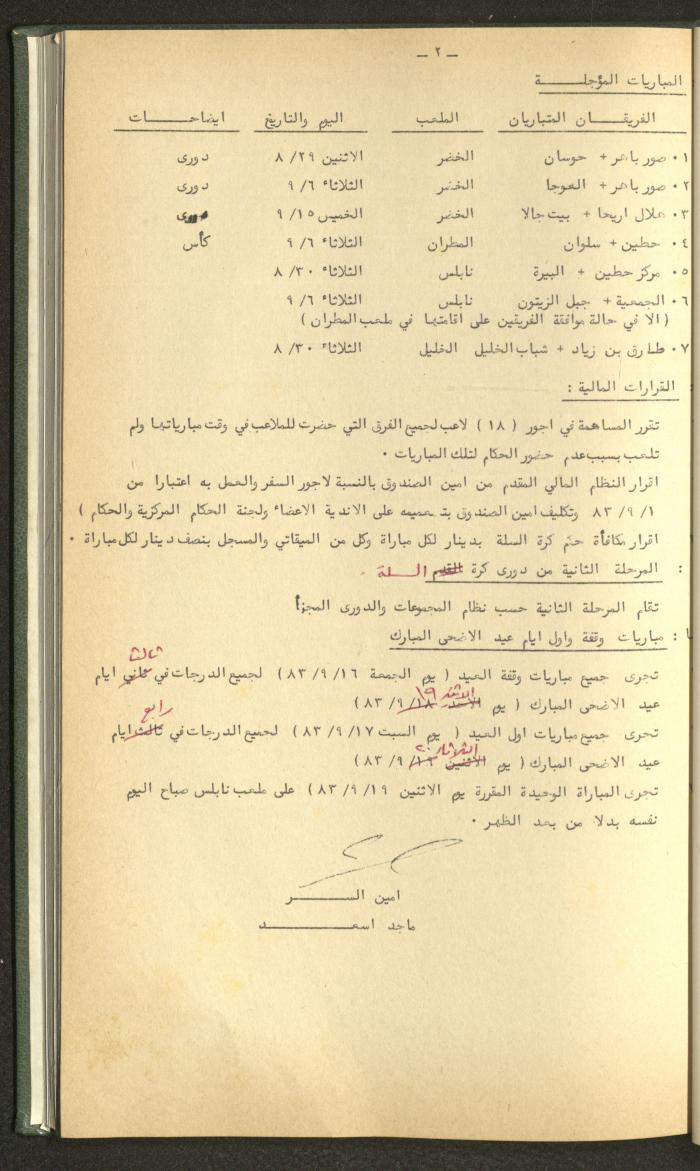 - ٢ -
المباريات المؤجلـــــة
الفريقـــان المتباريان الملعب اليوم والتاريخ ايضاحـــات
٠١ صور باهر + حوسان الخضر الاثنين ٢٩/ ٨ دورى
٠٢ صور باهر + العوجا الخضر الثلاثاء ٦/ ٩ دورى
٠٣ هلال اريحا + بيت جالا الخضر الخميس ١٥/ ٩ دورى
٠٤ حطين + سلوان المطران الثلاثاء ٦/ ٩ كأس
٠٥ مركز حطين + البيرة نابلس الثلاثاء ٣٠/ ٨
٠٦ الجمعية + جبل الزيتون نابلس الثلاثاء ٦/ ٩
( الا في حالة موافقة الفريقين على اقامتها في ملعب المطران )
٠٧ طارق بن زياد + شباب الخليل الخليل الثلاثاء ٣٠/ ٨
: القرارات المالية :
تقرر المساهمة في اجور ( ١٨ ) لاعب لجميع الفرق التي حضرت للملاعب في وقت مبارياتها ولم
تلعب بسبب عدم حضور الحكام لتلك المباريات ٠
اقرار النظام المالي المقدم من امين الصندوق بالنسبة لاجور السفر والعمل به اعتبارا من
١/ ٩/ ٨٣ وتكليف امين الصندوق بتعميمه على الاندية الاعضاء ولجنة الحكام المركزية والحكام )
اقرار مكافأة حكم كرة السلة بدينار لكل مباراة وكل من الميقاتي والمسجل بنصف دينار لكل مباراة ٠
: المرحلة الثانية من دورى كرة القدم السلة .
تقام المرحلة الثانية حسب نظام المجموعات والدورى المجزأ
: مباريات وقفة واول ايام عيد الاضحى المبارك
ثالث
تجرى جميع مباريات وقفة العيد ( يوم الجمعة ١٦/ ٩/ ٨٣ ) لجميع الدرجات في ثاني ايام
الاثنين ١٩
عيد الاضحى المبارك ( يوم الاحد ١٨/ ٩/ ٨٣ )
رابع
تجرى جميع مباريات اول العيد ( يوم السبت ١٧/ ٩/ ٨٣ ) لجميع الدرجات في ثالث ايام
الثلاثاء ٢٠
عيد الاضحى المبارك ( يوم الاثنين ١٩/ ٩/ ٨٣ )
تجرى المباراة الوحيدة المقررة يوم الاثنين ١٩/ ٩/ ٨٣ ) على ملعب نابلس صباح اليوم
نفسه بدلا من بعد الظهر ٠
امين الســـــر
ماجد اسعـــــد